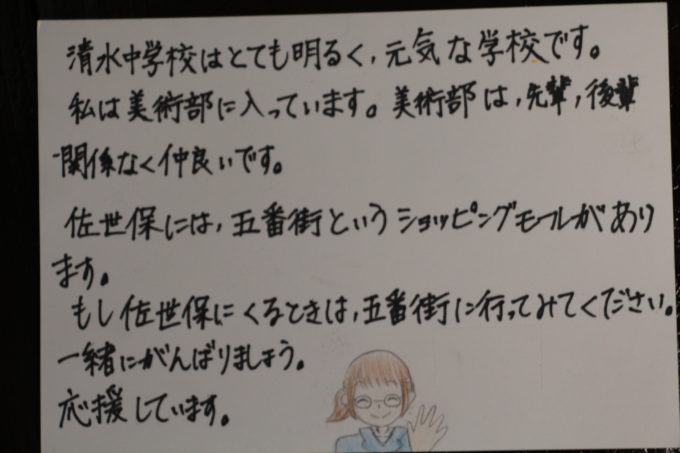 清水中学校はとても明るく,元気な学校です。
私は美術部に入っています。美術部は,先輩,後輩
関係なく仲良いです。
佐世保には,五番街というショッピングモールがあり
ます。
もし佐世保にくるときは,五番街に行ってみてください。
一緒にがんばりましょう。
応援しています。